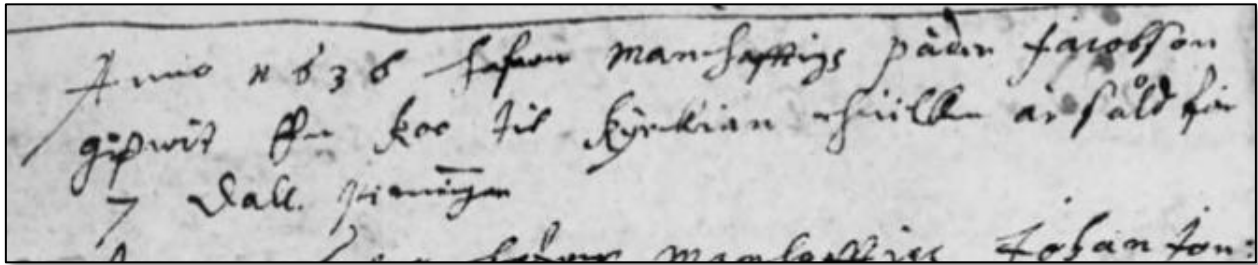 Anno 1636 hafwer Manhafftigs Päder Jacobsson
gifwit Een koo til kyrkian hwilken är såld för
7 Dall. peninger
hafwer Manhafftigs Johan Jon: